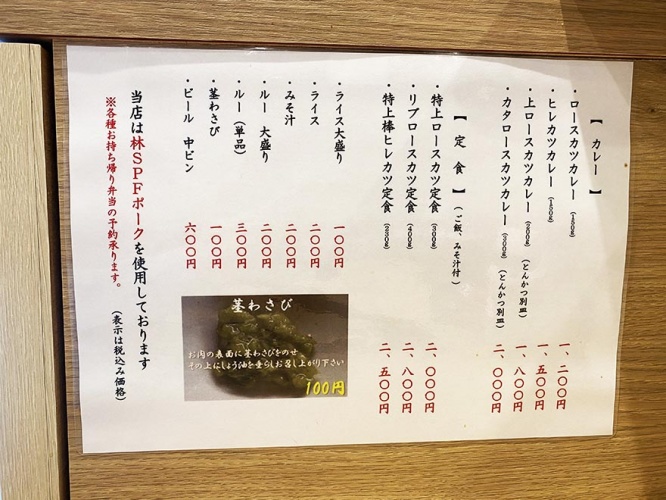 【 カレー 】
・ロースカツカレー 一、二〇〇円
・ヒレカツカレー 一、五〇〇円
・上ロースカツカレー (200g) (とんかつ別皿) 一、八〇〇円
・カタロースカツカレー (200g) (とんかつ別皿) 二、〇〇〇円
【 定 食 】 (ご飯、みそ汁付)
・特上ロースカツ定食 (300g) 二、〇〇〇円
・リブロースカツ定食 (400g) 二、八〇〇円
・特上棒ヒレカツ定食 (250g) 二、五〇〇円
・ライス大盛り 一〇〇円
・ライス 二〇〇円
・みそ汁 二〇〇円
・ルー 大盛り 二〇〇円
・ルー (単品) 三〇〇円
・茎わさび 一〇〇円
・ビール 中ビン 六〇〇円
茎わさび
お肉の表面に茎わさびをのせ
その上にしょう油を垂らしお召し上がり下さい
100円
当店は林SPFポークを使用しております
※各種お持ち帰り弁当の予約承ります。
(表示は税込み価格)